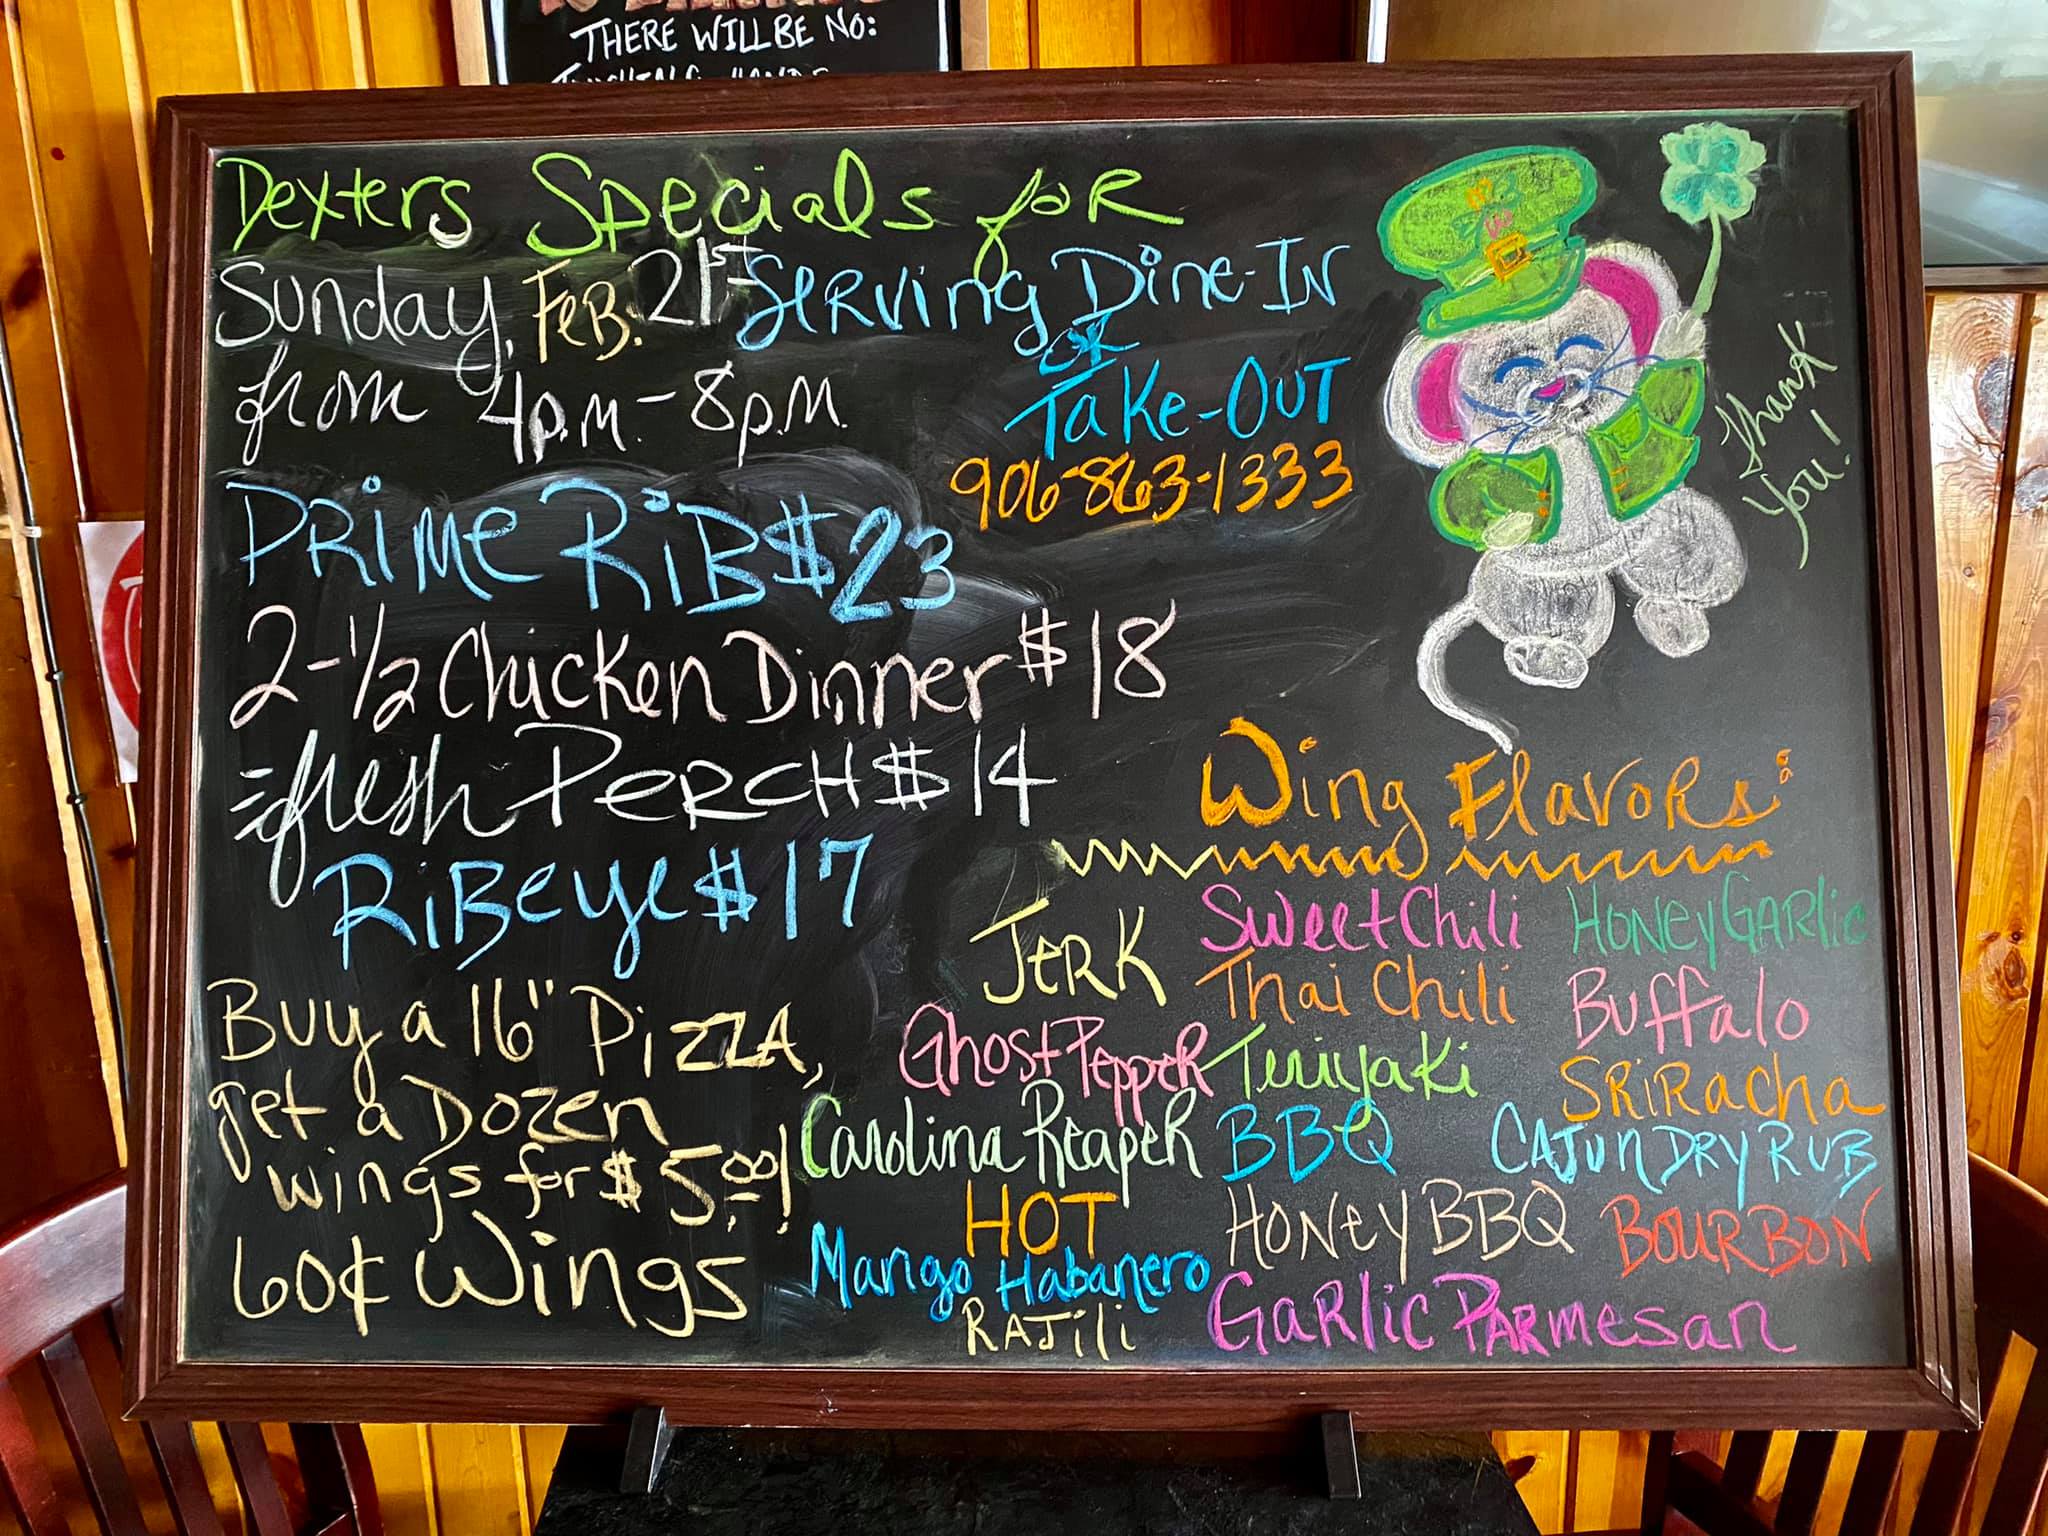 THERE WILL BE NO:
Dexters Specials for
Sunday, Feb. 21st
from 4p.m. - 8p.m.
Serving Dine-In
or
Take-Out
906-863-1333
Thank
You!
Prime Rib $23
2-1/2 Chicken Dinner $18
=fresh Perch $14
Ribeye $17
Buy a 16" Pizza,
get a Dozen
wings for $5.00!
60¢ Wings
Wing Flavors:
Jerk
Ghost Pepper
Carolina Reaper
HOT
Mango Habanero
Rajili
Sweet Chili
Thai Chili
Teriyaki
BBQ
Honey BBQ
Garlic Parmesan
Honey Garlic
Buffalo
Sriracha
Cajun Dry Rub
Bourbon